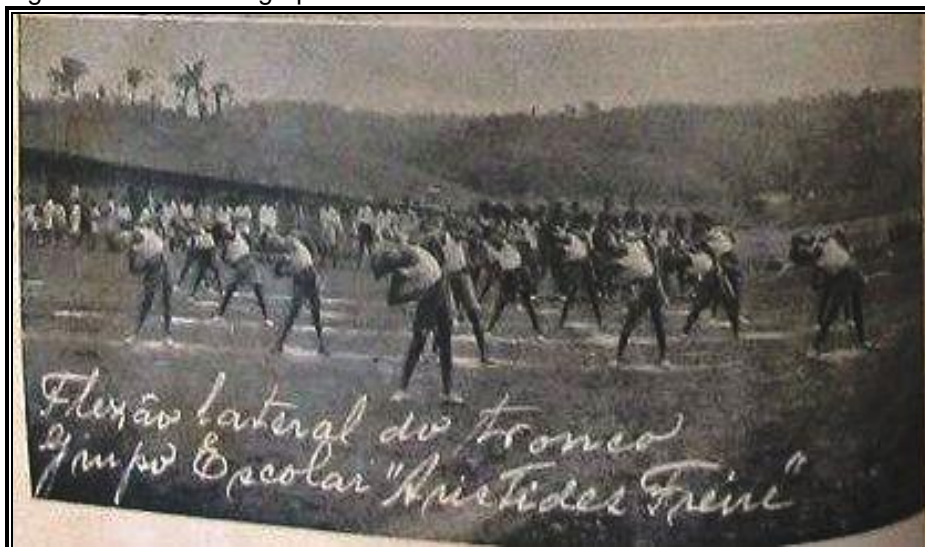 Flexão lateral do tronco
Grupo Escolar "Aristides Freire"